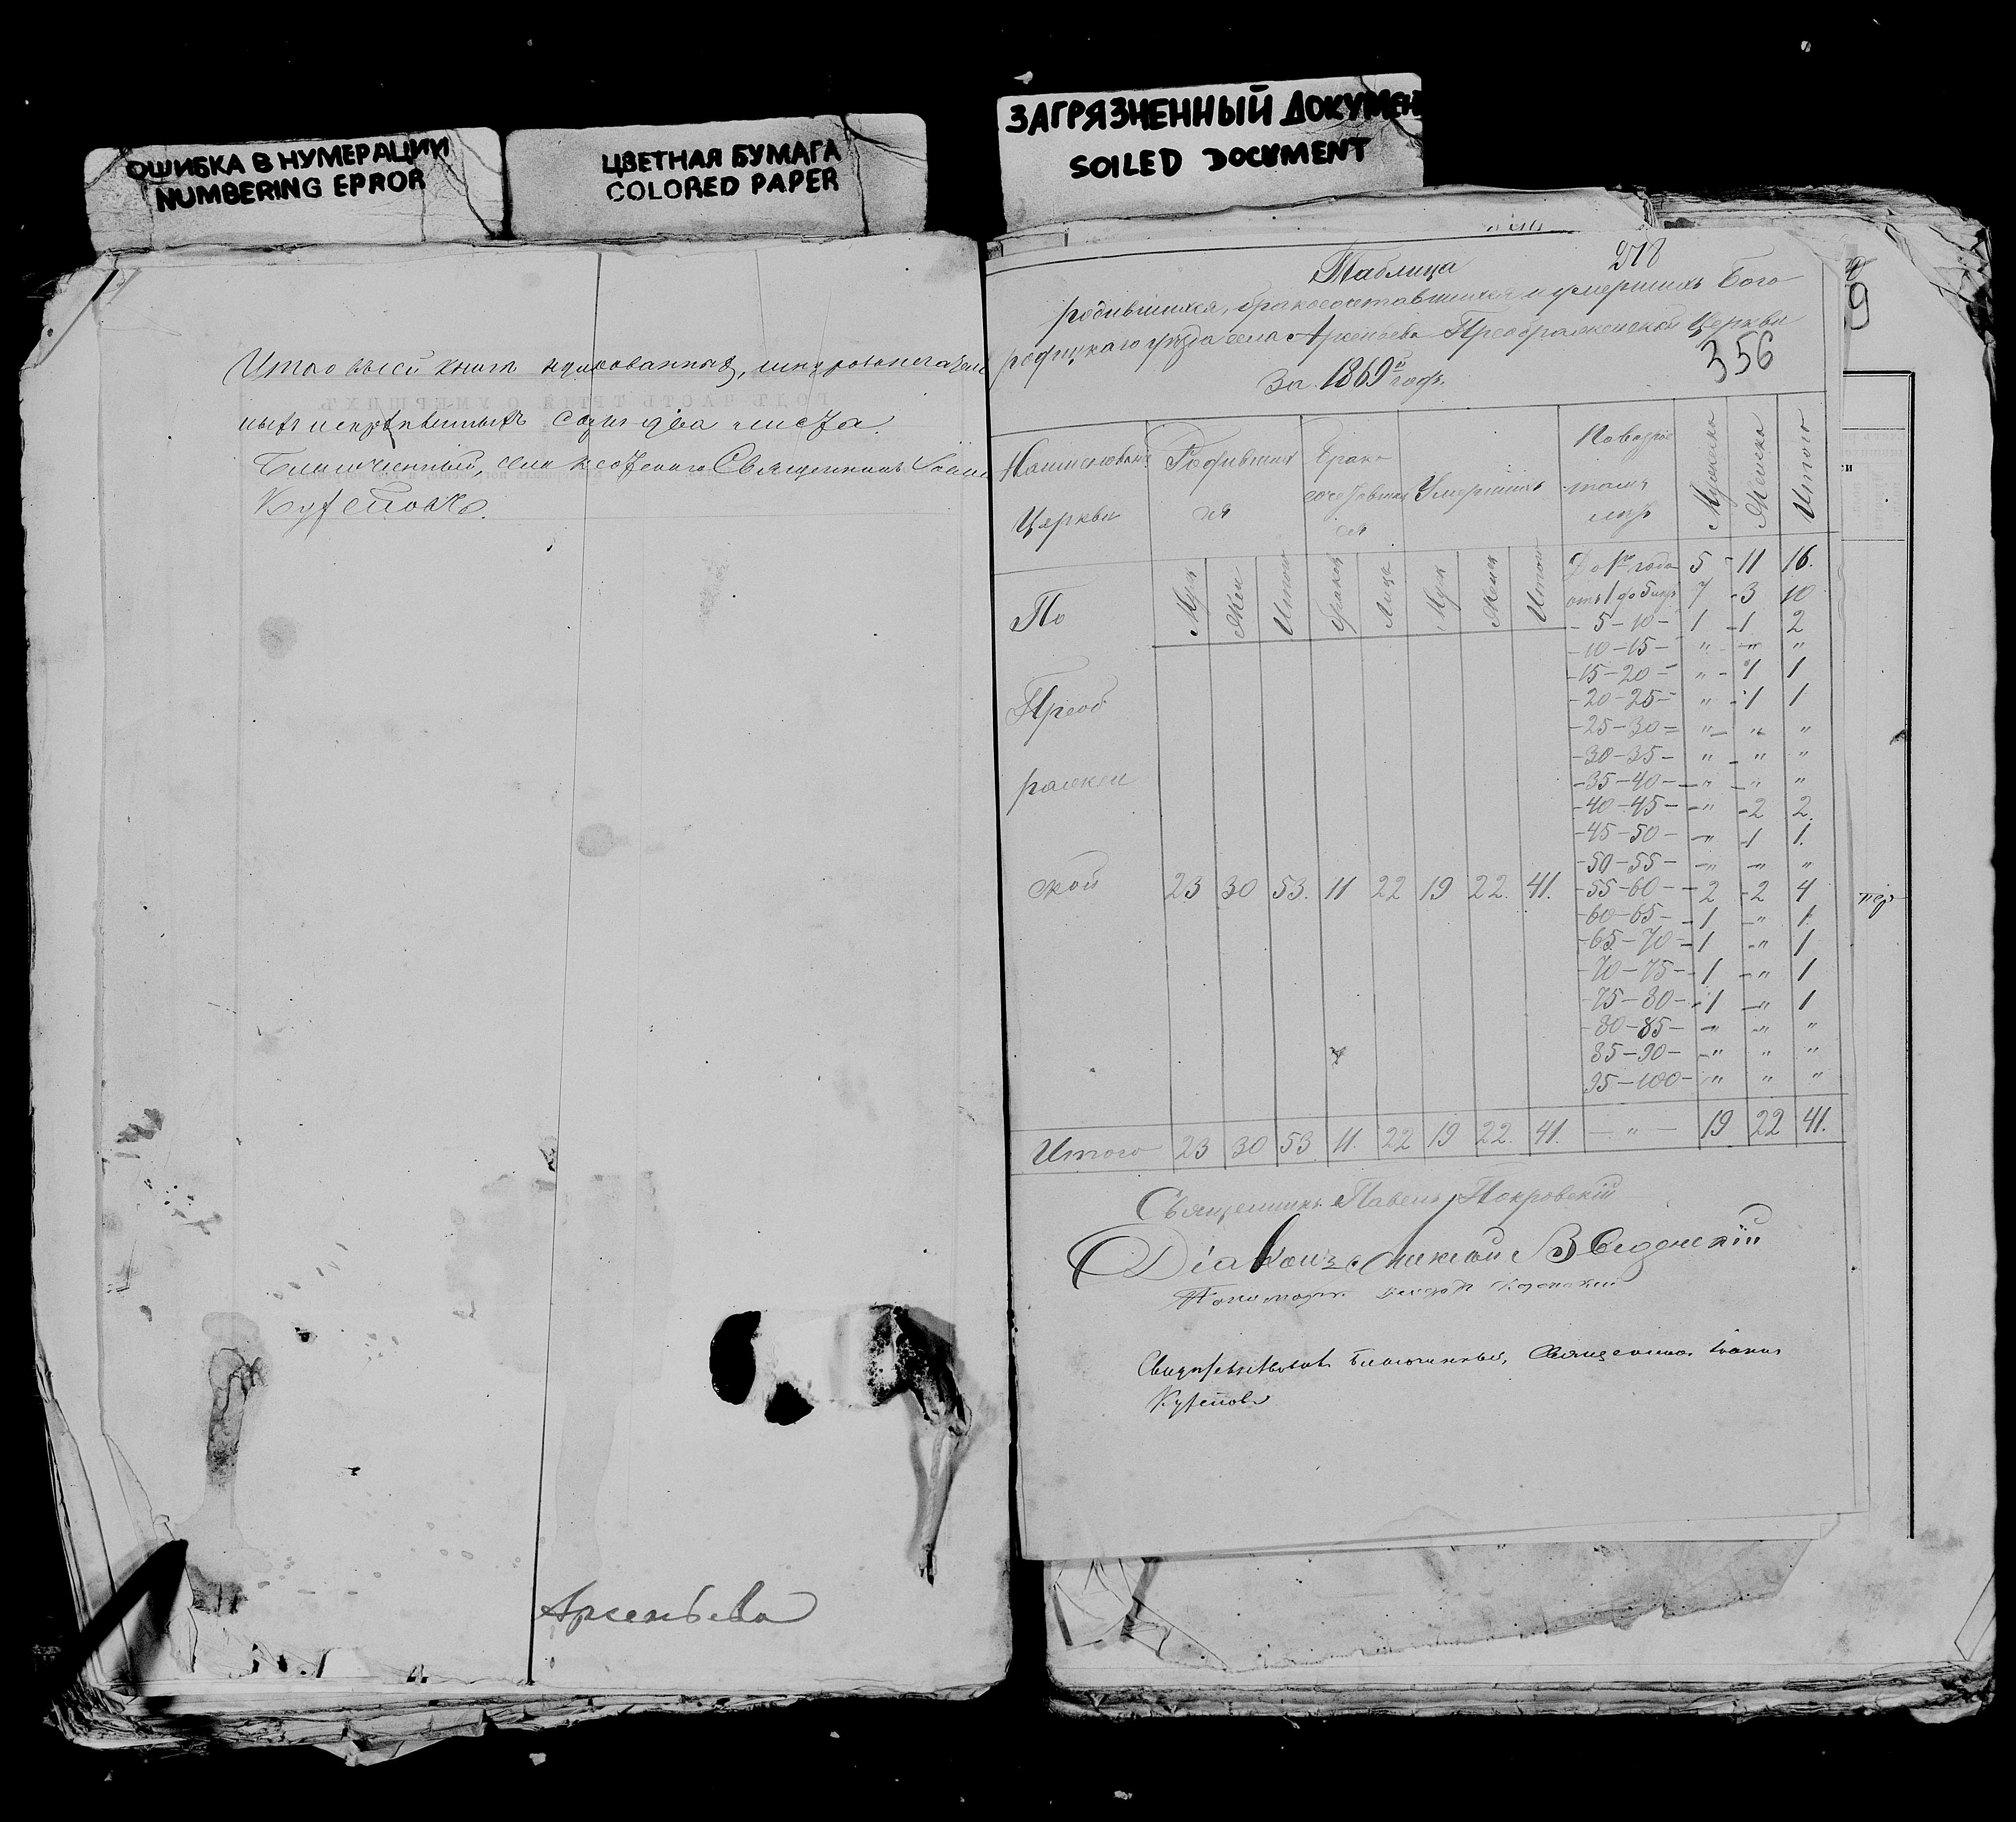 ОШИБКА В НУМЕРАЦИИ
NUMBERING ERROR
ЦВЕТНАЯ БУМАГА
COLORED PAPER
ЗАГРЯЗНЕННЫЙ ДОКУМЕН
SOILED DOCUMENT
Итого въ сей книгѣ нумерованныхъ,
два листа.
Благочинный, села Священникъ
Кутеповъ.
Арсеньева
218
Таблица
родившихся, бракосочетавшихся и умершихъ Бого
родицкаго уѣзда села Арсеньева Преображенской Церкви
356
За 1869й годъ.
Наименованіе Церкви
Родившихся
Брако сочетавшихся
Умершихъ
По возрастамъ лѣтъ
Мужеска
Женска
Итого
Муж
Жен
Итого
Браков
Лицъ
Муж
Женск
Итого
По Преображенской 23 30 53. 11 22 19 22. 41.
До 1го года 5 - 11 16.
отъ 1 до 5 лѣтъ 7 - 3 10
- 5 - 10 - 1 - 1 2
- 10 - 15 - " - " "
- 15 - 20 - " - 1 1
- 20 - 25 - " - 1 1
- 25 - 30 - " - " "
- 30 - 35 - " - " "
- 35 - 40 - " - " "
- 40 - 45 - " - 2 2.
- 45 - 50 - " - 1 1.
- 50 - 55 - " - " "
- 55 - 60 - 2 - 2 4
- 60 - 65 - 1 - " 1.
- 65 - 70 - 1 - " 1
- 70 - 75 - 1 - " 1
- 75 - 80 - 1 - " 1
- 80 - 85 - " - " "
85 - 90 - " " "
95 - 100 - " " "
Итого 23 30 53. 11. 22 19 22. 41. - " - 19 22 41.
Священникъ Павелъ Покровскій
Діаконъ Введенскій
Пономарь
Свидѣтельствовалъ Благочинный, Священникъ Іоаннъ
Кутеповъ